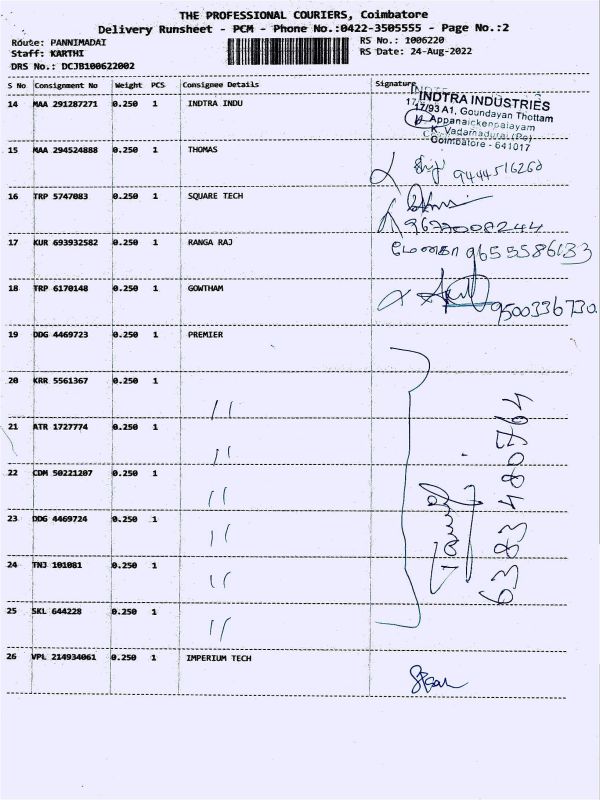 THE PROFESSIONAL COURIERS, Coimbatore
Delivery Runsheet - PCM - Phone No.:0422-3505555 - Page No.:2
Route: PANNIMADAI RS No.: 1006220
Staff: KARTHI RS Date: 24-Aug-2022
DRS No.: DCJB100622002
S No Consignment No Weight PCS Consignee Details Signature
14 MAA 291287271 0.250 1 INDTRA INDU
INDTRA INDUSTRIES
17/93 A1, Goundayan Thottam
Appanaickenpalayam
K. Vadamadurai (Po)
Coimbatore - 641017
15 MAA 294524888 0.250 1 THOMAS
9444516260
16 TRP 5747083 0.250 1 SQUARE TECH
9677008244
17 KUR 693932582 0.250 1 RANGA RAJ
மேனகா 9655586133
18 TRP 6170148 0.250 1 GOWTHAM
9500336730
19 DDG 4469723 0.250 1 PREMIER
20 KRR 5561367 0.250 1 11
21 ATR 1727774 0.250 1 11
22 CDM 50221207 0.250 1 11
23 DDG 4469724 0.250 1 11
24 TNJ 101081 0.250 1 11
25 SKL 644228 0.250 1 11
6383480764
26 VPL 214934061 0.250 1 IMPERIUM TECH